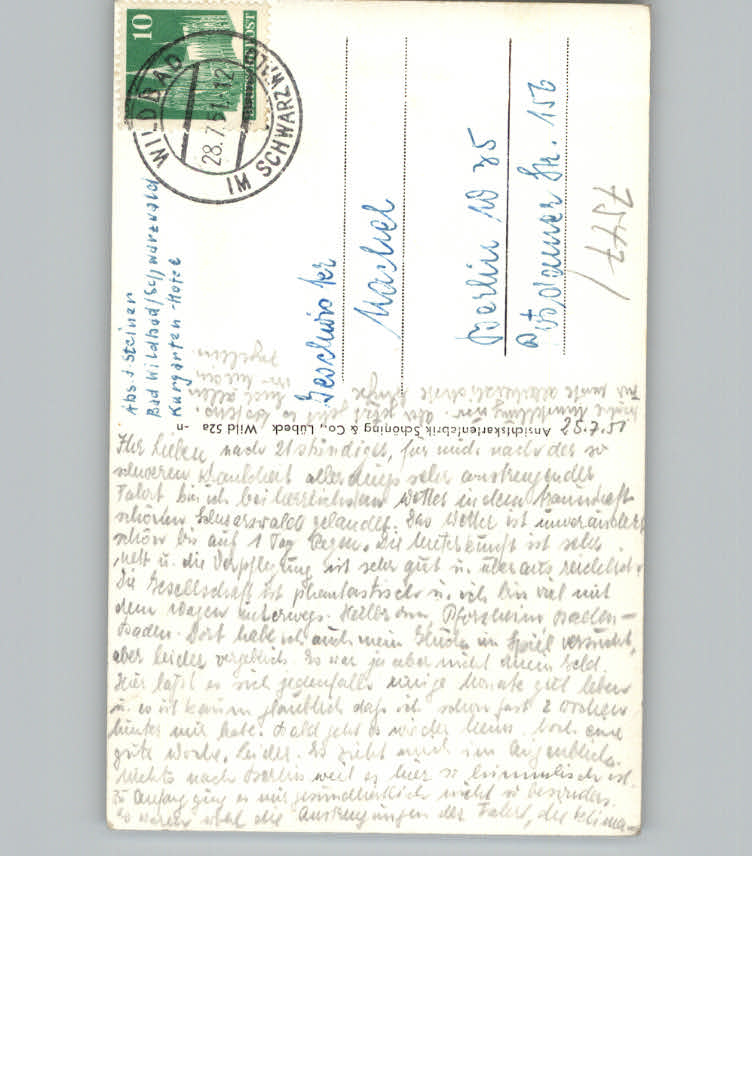 10
POST
WILDBAD
28.7.51-12
IM SCHWARZW
Abs. J. Steiner
Bad Wildbad/Schwarzwald
Kurgarten-Hotel
Geschwister
Maskel
Berlin W 35
Potsdamer Str. 156
7547/
Ansichtskartenfabrik Schöning & Co., Lübeck Wild 52a -n
25.7.51
Ihr Lieben, nach 21 stündiger, für mich nach der so
schweren Krankheit allerdings sehr anstrengender
Fahrt bin ich bei herrlichstem Wetter in dem traumhaft
schönen Schwarzwald gelandet. Das Wetter ist unverändert
schön bis auf 1 Tag Regen. Die Unterkunft ist sehr
nett u. die Verpflegung ist sehr gut u. überaus reichlich.
Die Gesellschaft ist phantastisch u. ich bin viel mit
dem Wagen unterwegs. Heilbronn, Pforzheim Baden-
Baden. Dort habe ich auch mein Glück im Spiel versucht,
aber leider vergeblich. Es war ja aber nicht mein Geld.
Hier läßt es sich jedenfalls einige Monate gut leben
u. es ist kaum glaublich daß ich schon fast 2 Wochen
hinter mir habe. Bald geht es wieder heim. Noch eine
gute Woche, leider. Es zieht mich im Augenblick
nichts nach Berlin weil es hier so himmlisch ist.
Zu Anfang ging es mir gesundheitlich nicht so besonders.
Es waren wohl die Anstrengungen der Fahrt, die Klima-
umstellung usw. Aber jetzt geht es
Für heute allerherzlichste Grüße Euch allen